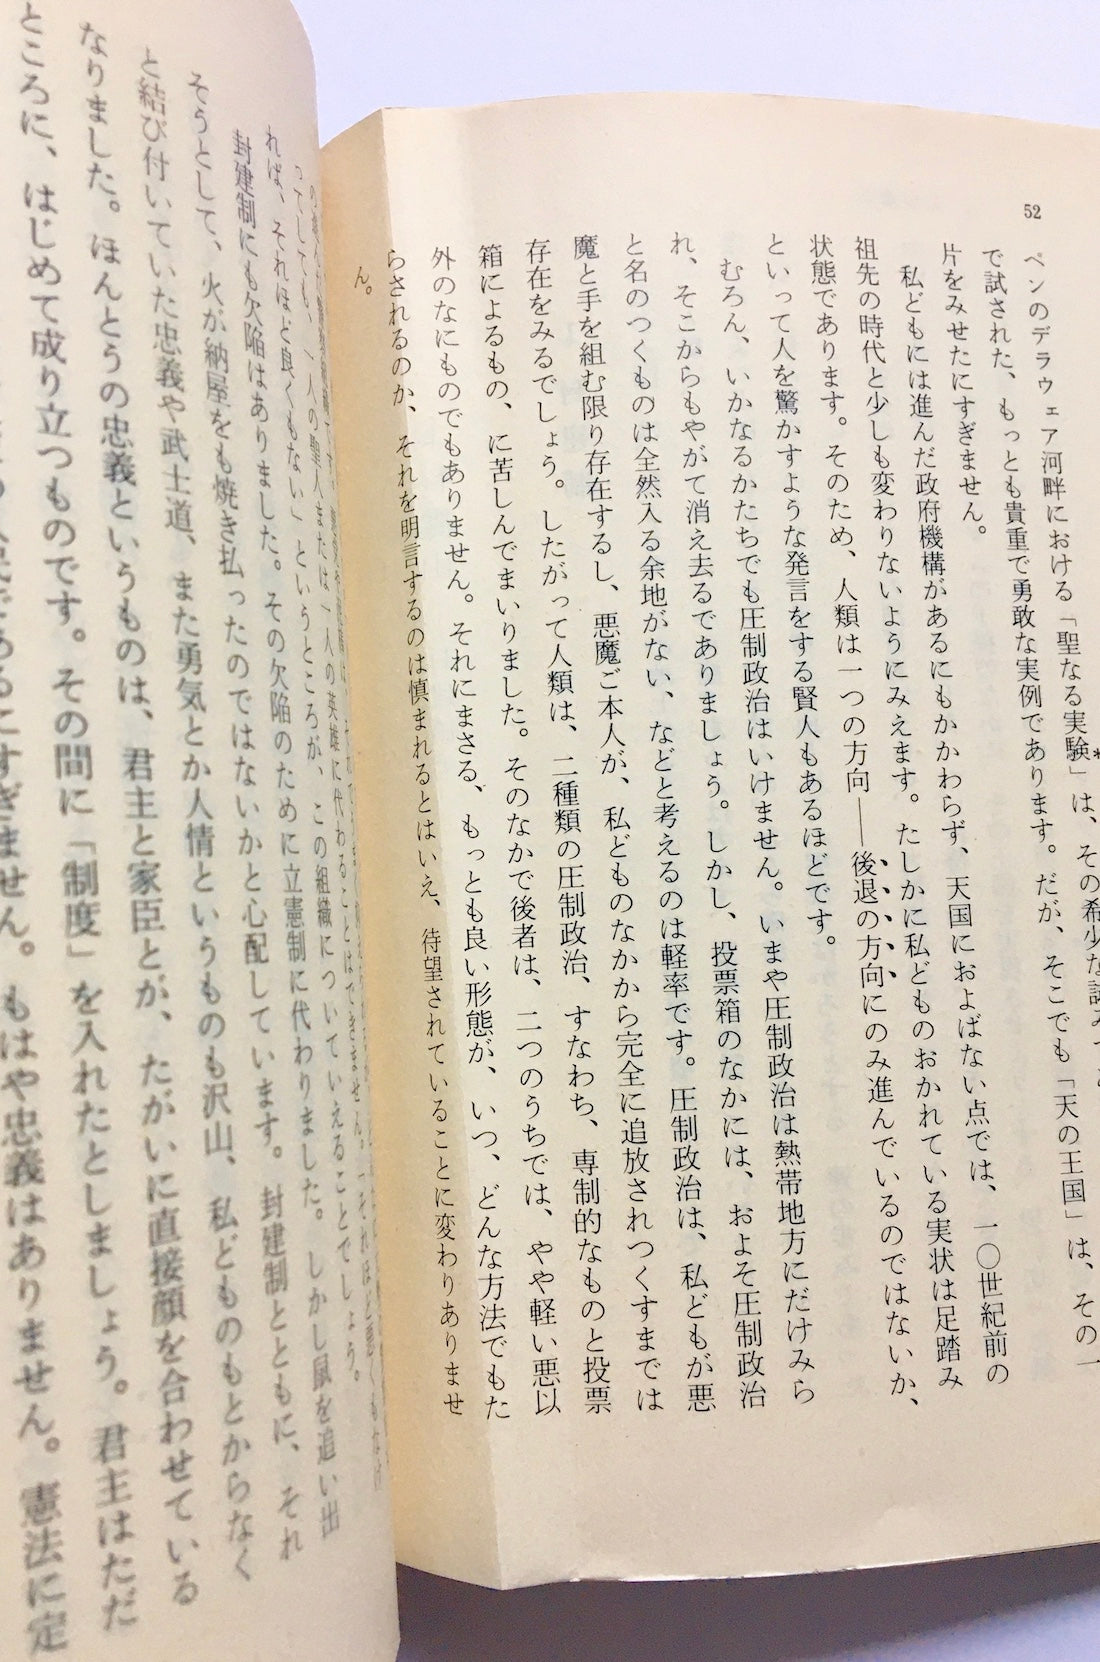 52
ペンのデラウェア河畔における「聖なる実験*」は、その希少な試みで
で試された、もっとも貴重で勇敢な実例であります。だが、そこでも「天の王国」は、その一
片をみせたにすぎません。
私どもには進んだ政府機構があるにもかかわらず、天国におよばない点では、一〇世紀前の
祖先の時代と少しも変わりないようにみえます。たしかに私どものおかれている実状は足踏み
状態であります。そのため、人類は一つの方向――後退の方向にのみ進んでいるのではないか、
といって人を驚かすような発言をする賢人もあるほどです。
むろん、いかなるかたちでも圧制政治はいけません。いまや圧制政治は熱帯地方にだけみら
れ、そこからもやがて消え去るでありましょう。しかし、投票箱のなかには、およそ圧制政治
と名のつくものは全然入る余地がない、などと考えるのは軽率です。圧制政治は、私どもが悪
魔と手を組む限り存在するし、悪魔ご本人が、私どものなかから完全に追放されつくすまでは
存在をみるでしょう。したがって人類は、二種類の圧制政治、すなわち、専制的なものと投票
箱によるもの、に苦しんでまいりました。そのなかで後者は、二つのうちでは、やや軽い悪以
外のなにものでもありません。それにまさる、もっとも良い形態が、いつ、どんな方法でもた
らされるのか、それを明言するのは慎まれるとはいえ、待望されていることに変わりありませ
ん。
ってしても、一人の聖人または一人の英雄に代わることはできません。「それほど悪くもなけ
れば、それほど良くもない」というところが、この組織についていえることでしょう。
封建制にも欠陥はありました。その欠陥のために立憲制に代わりました。しかし鼠を追い出
そうとして、火が納屋をも焼き払ったのではないかと心配しています。封建制とともに、それ
と結び付いていた忠義や武士道、また勇気とか人情というものも沢山、私どものもとからなく
なりました。ほんとうの忠義というものは、君主と家臣とが、たがいに直接顔を合わせている
ところに、はじめて成り立つものです。その間に「制度」を入れたとしましょう。君主はただ
人民であるにすぎません。もはや忠義はありません。憲法に定